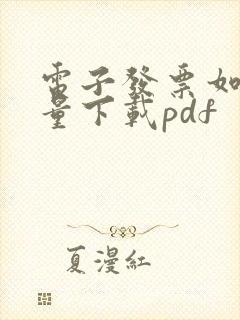 電子發票如
量下載pdf
夏漫紅